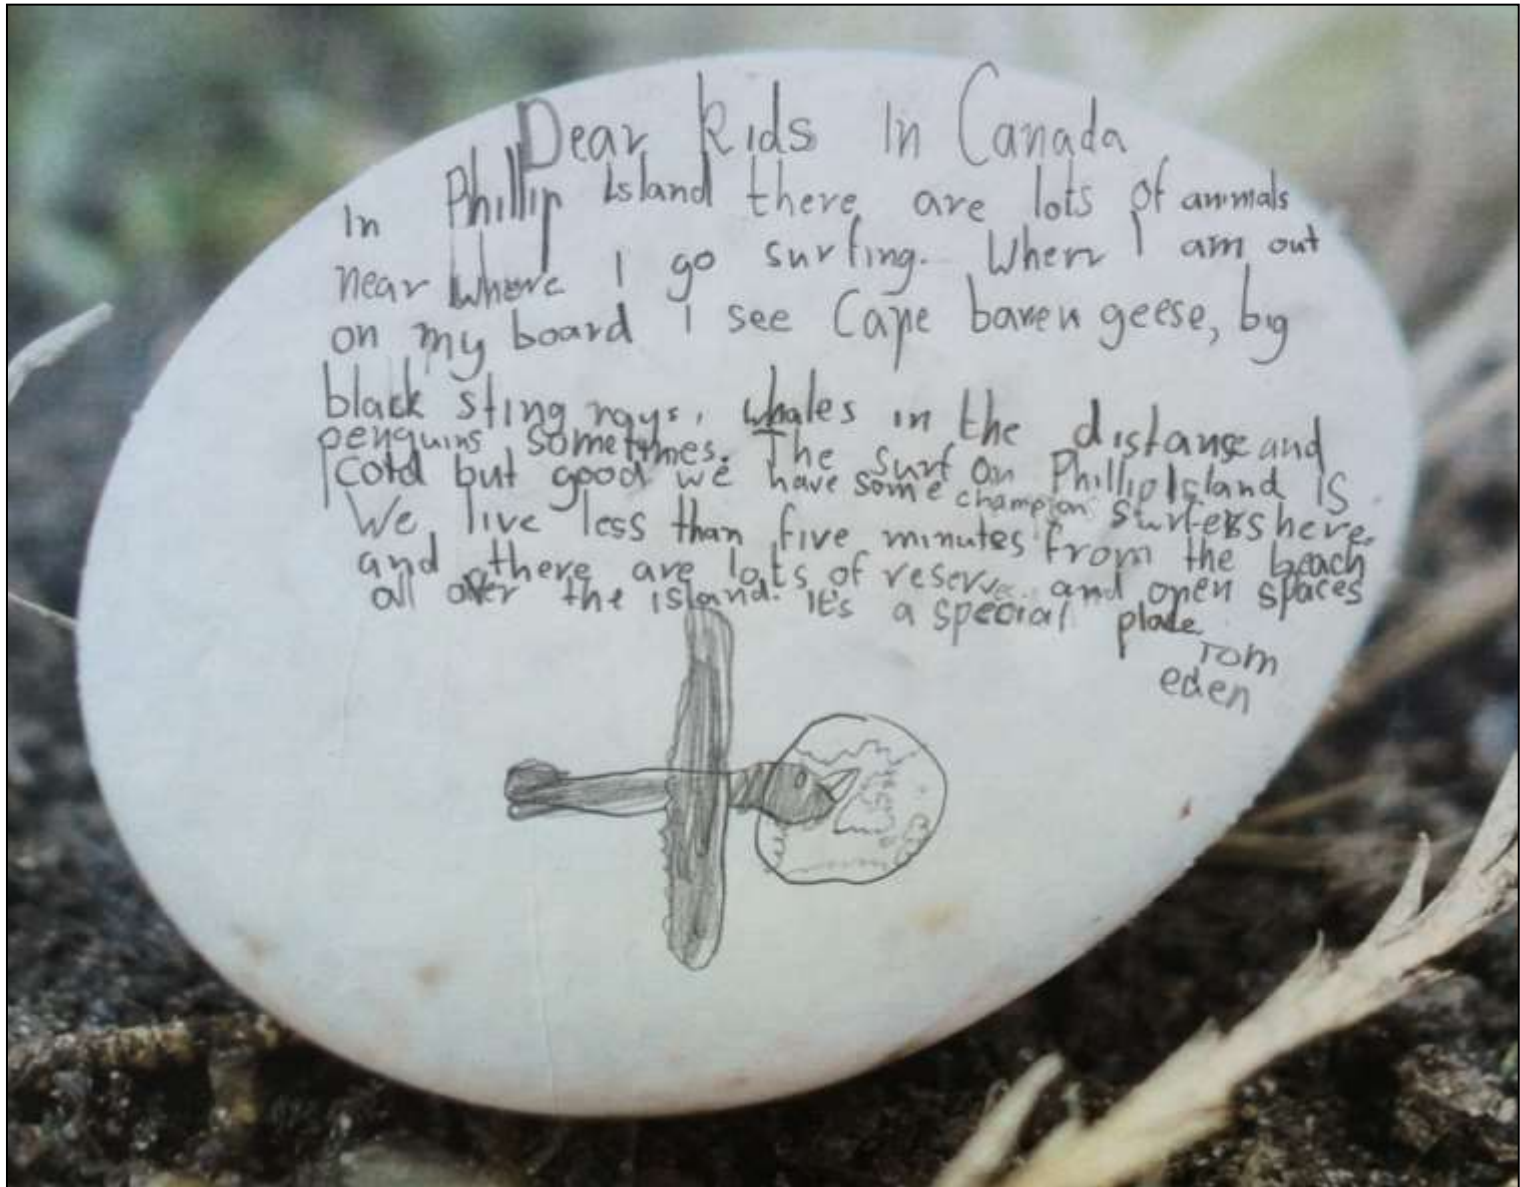 Dear Kids In Canada
In Phillip Island there are lots of animals
near where I go surfing. When I am out
on my board I see Cape baren geese, big
black sting rays, whales in the distance and
penguins sometimes. The surf on Phillip Island is
cold but good we have some champion surfers here.
We live less than five minutes from the beach
and there are lots of reserve and open spaces
all over the island. It's a special place
Tom
eden